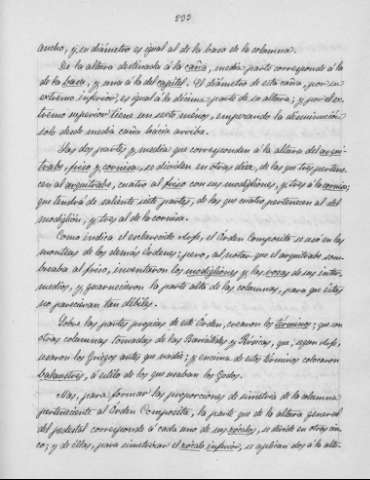 533
ancho, y su diámetro es igual al de la basa de la columna.
De la altura destinada á la caña, media parte corresponde á la
de la basa, y una á la del capitel. El diámetro de esta caña, por su
extremo inferior, es igual á la décima parte de su altura; y por el ex-
tremo superior tiene un sexto ménos, empezando la disminucion
solo desde media caña hácia arriba.
Las dos partes y media que corresponden á la altura del arqui-
trabe, friso y cornisa, se dividen en otras diez, de las que tres pertene-
cen al arquitrabe, cuatro al friso con sus modillones, y tres á la cornisa;
que tendrá de saliente siete partes, de las que cuatro pertenecen al del
modillón, y tres al de la cornisa.
Como indica el esclarecido Arfe, el Orden Composito se usó en las
monteas de los demás Ordenes; pero, al notar que el arquitrabe som-
breaba al friso, inventaron los modillones y las rosas de sus inter-
medios, y guarnecieron la parte alta de las columnas, para que éstas
no pareciesen tan débiles.
Sobre las partes propias de este Orden, crearon los términos; que son
otras columnas tomadas de las Cariátides y Pérsicas, que, segun Arfe,
usaron los Griegos antes que nadie; y encima de estos términos colocaron
balaustres, á estilo de los que usaban los Godos.
Mas, para formar las proporciones de simetría de la columna
perteneciente al Orden Composito, la parte que de la altura general
del pedestal corresponde á cada uno de sus zócalos, se divide en otras cin-
co; y de éllas, para simetrizar el zócalo inferior, se aplican dos á la alti-